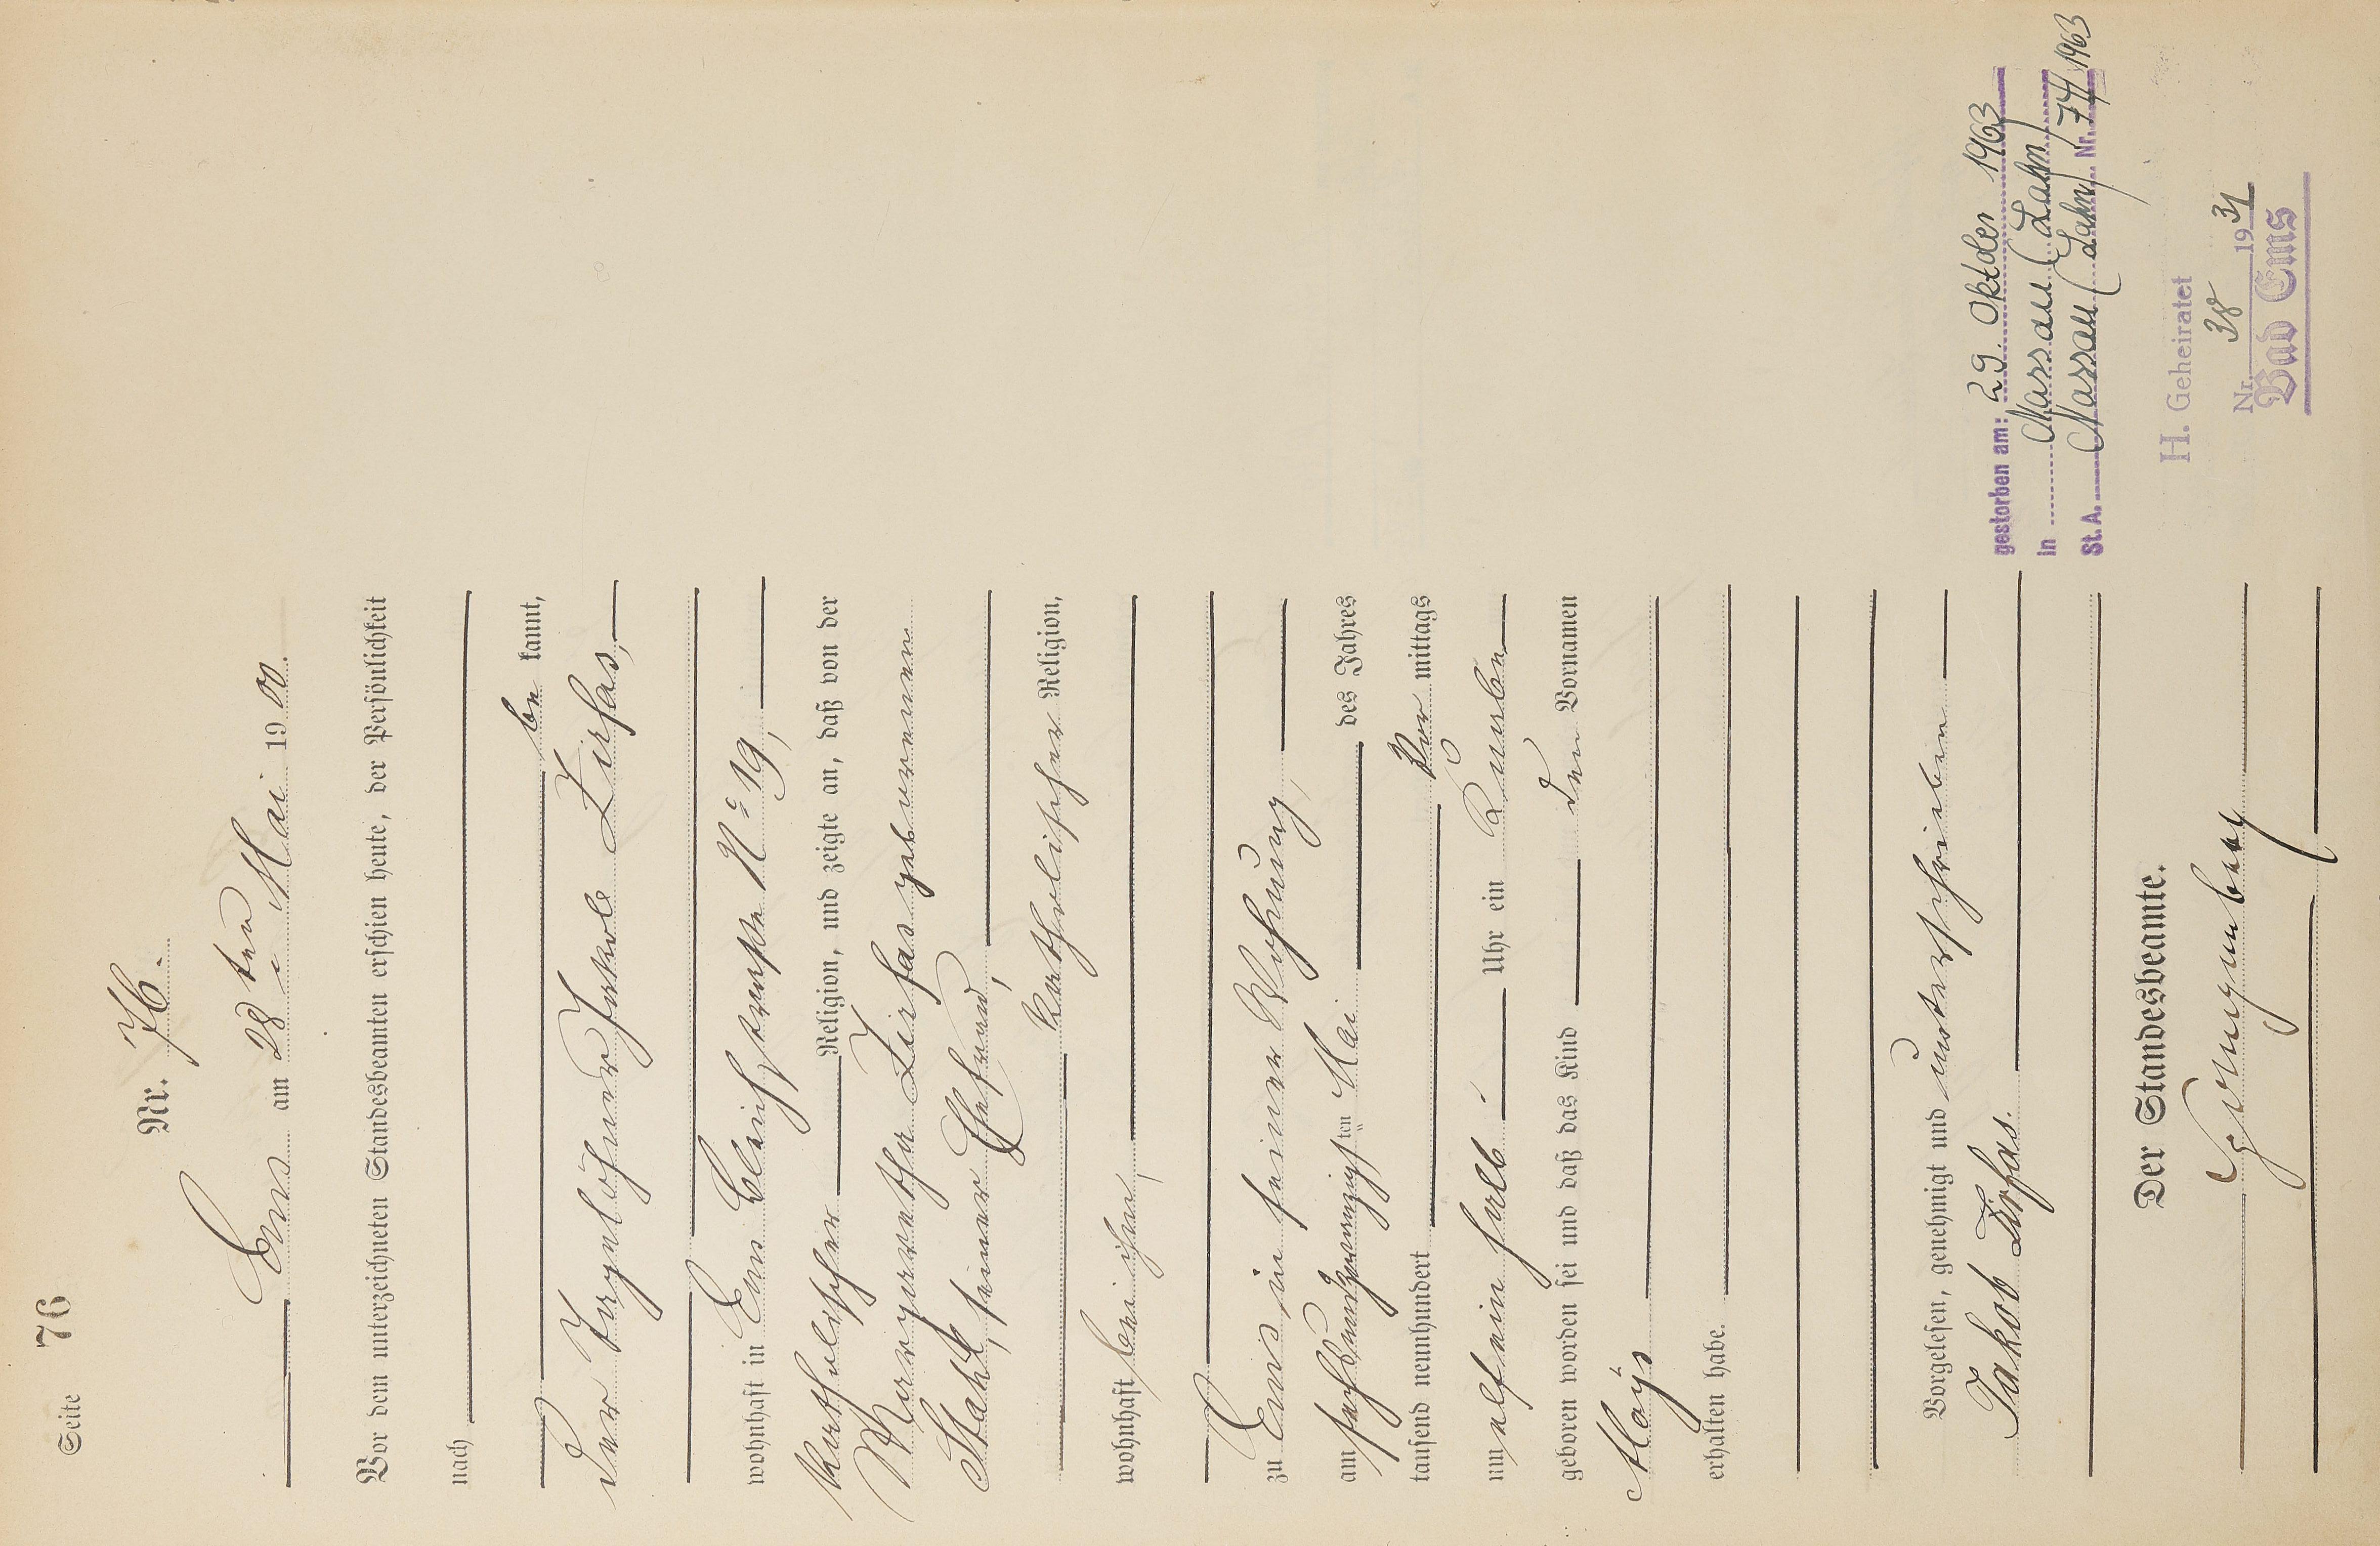 Seite 76
Nr. 76.
Ems am 28ten Mai 1900.
Vor dem unterzeichneten Standesbeamten erschien heute, der Persönlichkeit
nach
be kannt,
der Tagelöhner Jakob Zirfas,
wohnhaft in Ems Bleichstraße No 19,
katholischer Religion, und zeigte an, daß von der
Margaretha Zirfas geborenen
Stahl, seiner Ehefrau,
katholischer Religion,
wohnhaft bei ihm,
zu Ems in seiner Wohnung,
am sechsundzwanzigsten Mai des Jahres
tausend neunhundert Vor mittags
um elfein halb Uhr ein Knabe
geboren worden sei und daß das Kind den Vornamen
Aloys
erhalten habe.
Vorgelesen, genehmigt und unterschrieben
Jakob Zirfas.
Der Standesbeamte.
gestorben am: 29. Oktober 1963
in Nassau (Lahn)
St. A. Nassau (Lahn) Nr. 74/1963
H. Geheiratet
Nr. 38 1931
Bad Ems